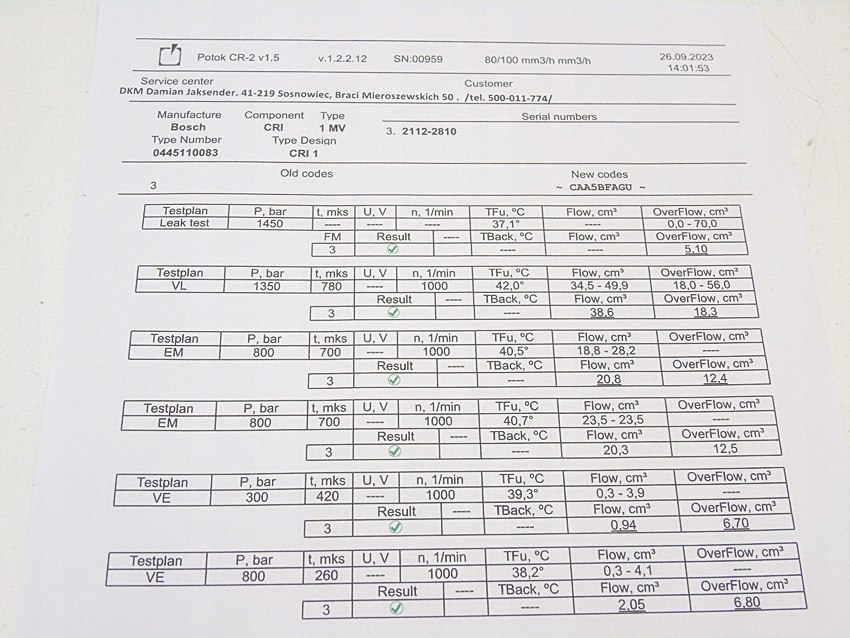 Potok CR-2 v1.5 v.1.2.2.12 SN:00959 80/100 mm3/h mm3/h 26.09.2023
14:01:53
Service center Customer
DKM Damian Jaksender. 41-219 Sosnowiec, Braci Mieroszewskich 50 . /tel. 500-011-774/
Manufacture Component Type Serial numbers
Bosch CRI 1 MV 3. 2112-2810
Type Number Type Design
0445110083 CRI 1
Old codes New codes
3 ~ CAA5BFAGU ~
Testplan P, bar t, mks U, V n, 1/min TFu, ºC Flow, cm³ OverFlow, cm³
Leak test 1450 ---- ---- ---- 37,1° ---- 0,0 - 70,0
FM Result ---- TBack, ºC Flow, cm³ OverFlow, cm³
3 ---- ---- 5,10
Testplan P, bar t, mks U, V n, 1/min TFu, ºC Flow, cm³ OverFlow, cm³
VL 1350 780 ---- 1000 42,0° 34,5 - 49,9 18,0 - 56,0
Result ---- TBack, ºC Flow, cm³ OverFlow, cm³
3 ---- 38,6 18,3
Testplan P, bar t, mks U, V n, 1/min TFu, ºC Flow, cm³ OverFlow, cm³
EM 800 700 ---- 1000 40,5° 18,8 - 28,2 ----
Result ---- TBack, ºC Flow, cm³ OverFlow, cm³
3 ---- 20,8 12,4
Testplan P, bar t, mks U, V n, 1/min TFu, ºC Flow, cm³ OverFlow, cm³
EM 800 700 ---- 1000 40,7° 23,5 - 23,5 ----
Result ---- TBack, ºC Flow, cm³ OverFlow, cm³
3 ---- 20,3 12,5
Testplan P, bar t, mks U, V n, 1/min TFu, ºC Flow, cm³ OverFlow, cm³
VE 300 420 ---- 1000 39,3° 0,3 - 3,9 ----
Result ---- TBack, ºC Flow, cm³ OverFlow, cm³
3 ---- 0,94 6,70
Testplan P, bar t, mks U, V n, 1/min TFu, ºC Flow, cm³ OverFlow, cm³
VE 800 260 ---- 1000 38,2° 0,3 - 4,1 ----
Result ---- TBack, ºC Flow, cm³ OverFlow, cm³
3 ---- 2,05 6,80